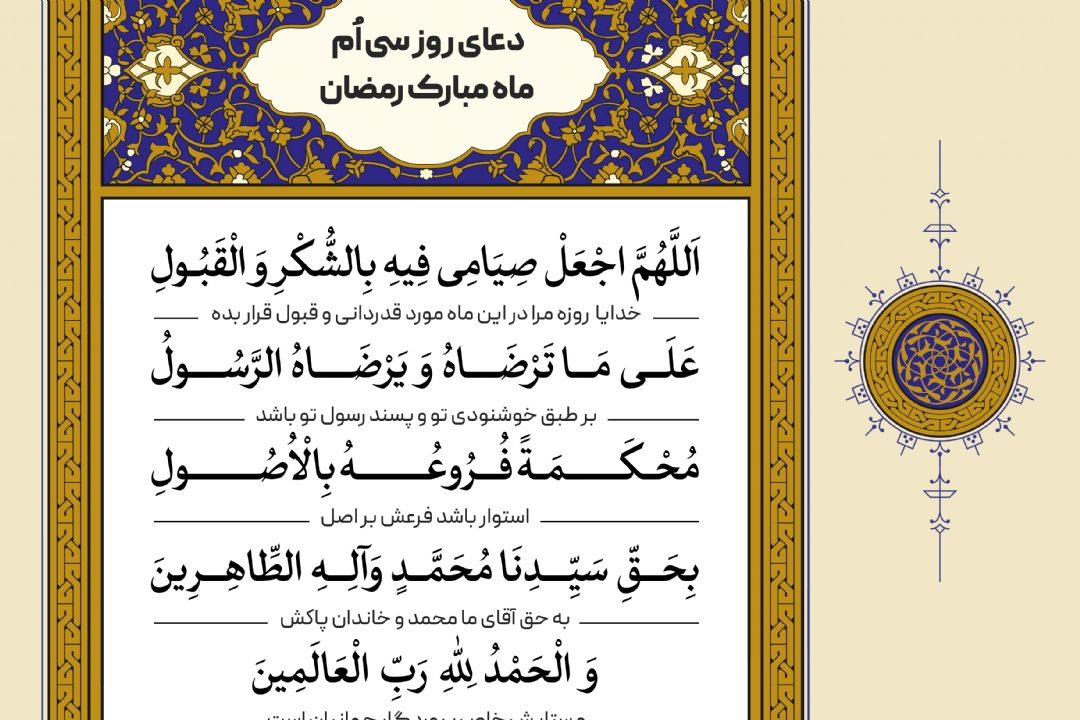 دعای روز سی‌اُم
ماه مبارک رمضان
اَللَّهُمَّ اجْعَلْ صِیَامِی فِیهِ بِالشُّکْرِ وَ الْقَبُولِ
خدایا روزه مرا در این ماه مورد قدردانی و قبول قرار بده
عَلَی مَا تَرْضَاهُ وَ یَرْضَاهُ الرَّسُولُ
بر طبق خوشنودی تو و پسند رسول تو باشد
مُحْکَمَةً فُرُوعُهُ بِالْاُصُولِ
استوار باشد فرعش بر اصل
بِحَقِّ سَیِّدِنَا مُحَمَّدٍ وَآلِهِ الطَّاهِرِینَ
به حق آقای ما محمد و خاندان پاکش
وَ الْحَمْدُ لِلّٰهِ رَبِّ الْعَالَمِینَ